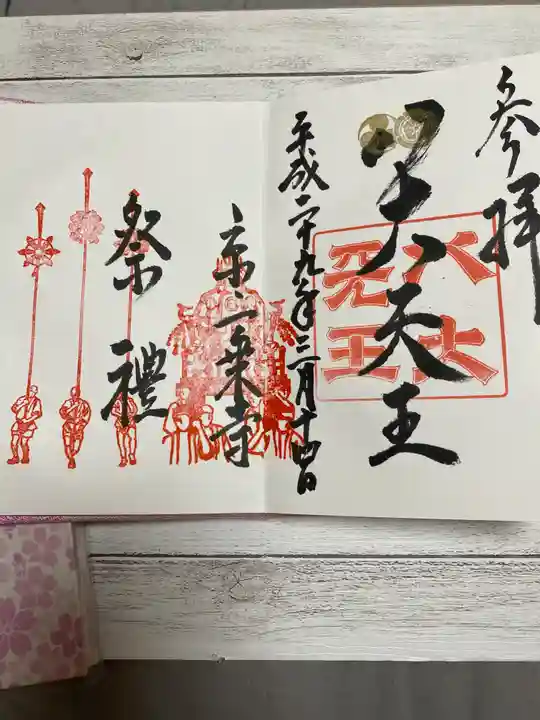 参拝
八大天王
八大天王
平成二十九年三月十四日
京一乗寺
祭禮